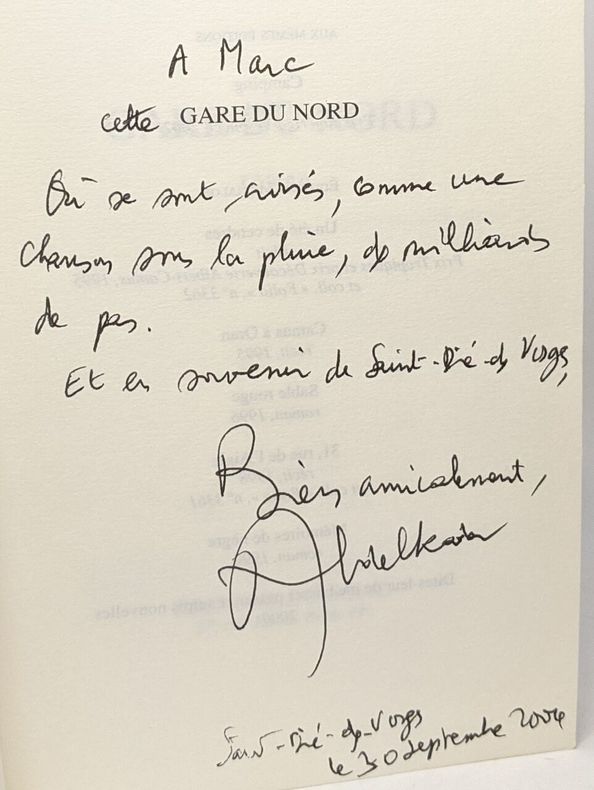 A Marc
cette GARE DU NORD
Où se sont croisés, comme une
chanson sous la pluie, des milliards
de pas.
Et en souvenir de Saint-Dié-des Vosges,
Bien amicalement,
Abdelkader
Saint-Dié-des-Vosges
le 30 septembre 2004